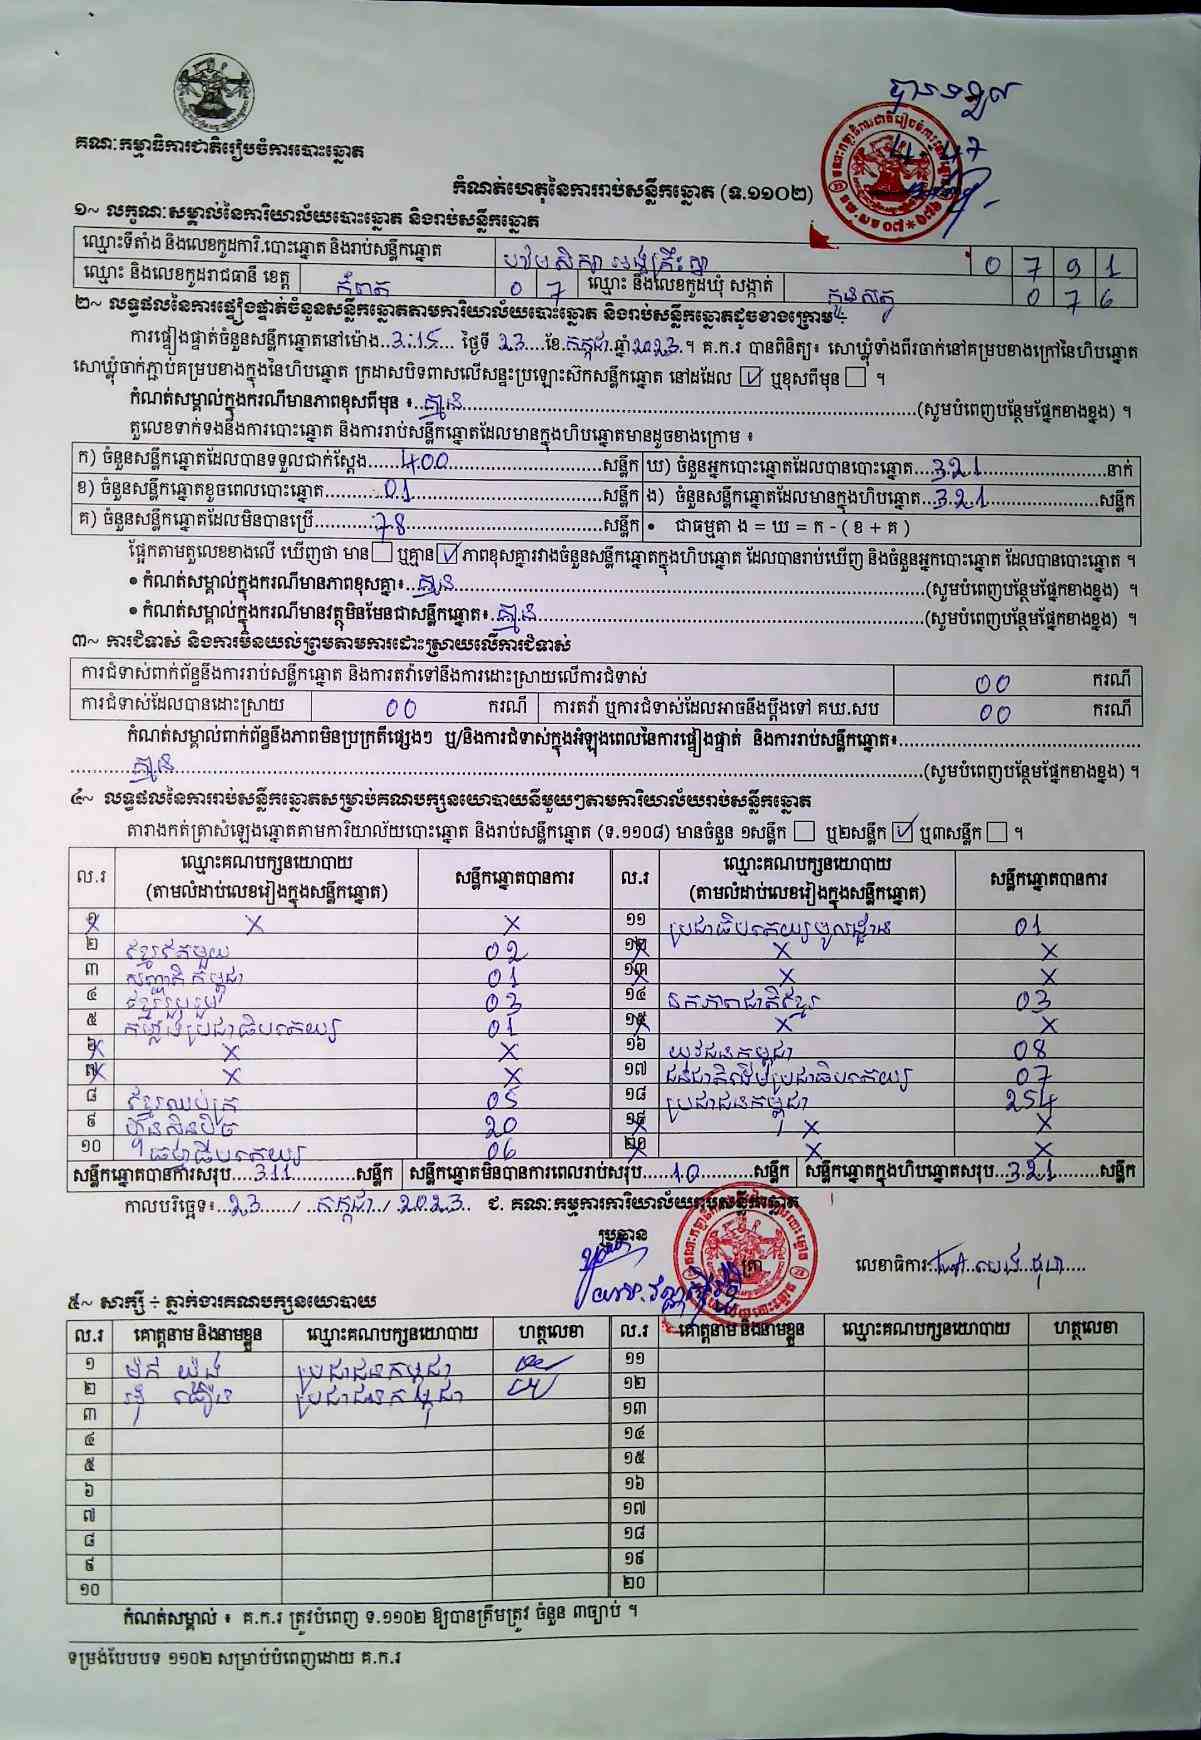 គណៈកម្មាធិការជាតិរៀបចំការបោះឆ្នោត
កំណត់ហេតុនៃការរាប់សន្លឹកឆ្នោត (ទ.១១០២)
១~ លក្ខណៈសម្គាល់នៃការិយាល័យបោះឆ្នោត និងរាប់សន្លឹកឆ្នោត
ឈ្មោះទីតាំង និងលេខកូដការិ.បោះឆ្នោត និងរាប់សន្លឹកឆ្នោត 0 7 9 1
ឈ្មោះ និងលេខកូដរាជធានី ខេត្ត កំពត 0 7 ឈ្មោះ និងលេខកូដឃុំ សង្កាត់ 0 7 6
២~ លទ្ធផលនៃការផ្ទៀងផ្ទាត់ចំនួនសន្លឹកឆ្នោតតាមការិយាល័យបោះឆ្នោត និងរាប់សន្លឹកឆ្នោតដូចខាងក្រោម÷
ការផ្ទៀងផ្ទាត់ចំនួនសន្លឹកឆ្នោតនៅម៉ោង..3:15... ថ្ងៃទី 23....ខែ.កក្កដា.ឆ្នាំ2023.។ គ.ក.រ បានពិនិត្យ៖ សោឃ្លុំទាំងពីរចាក់នៅគម្របខាងក្រៅនៃហិបឆ្នោត
សោឃ្លុំចាក់ភ្ជាប់គម្របខាងក្នុងនៃហិបឆ្នោត ក្រដាសបិទពាសលើសន្ទះប្រឡោះស៊កសន្លឹកឆ្នោត នៅដដែល ☑ ឬខុសពីមុន ☐ ។
កំណត់សម្គាល់ក្នុងករណីមានភាពខុសពីមុន ៖..គ្មាន....(សូមបំពេញបន្ថែមផ្នែកខាងខ្នង) ។
តួលេខទាក់ទងនឹងការបោះឆ្នោត និងការរាប់សន្លឹកឆ្នោតដែលមានក្នុងហិបឆ្នោតមានដូចខាងក្រោម ៖
ក) ចំនួនសន្លឹកឆ្នោតដែលបានទទួលជាក់ស្តែង......400......សន្លឹក ឃ) ចំនួនអ្នកបោះឆ្នោតដែលបានបោះឆ្នោត...321......នាក់
ខ) ចំនួនសន្លឹកឆ្នោតខូចពេលបោះឆ្នោត......01......សន្លឹក ង) ចំនួនសន្លឹកឆ្នោតដែលមានក្នុងហិបឆ្នោត...321......សន្លឹក
គ) ចំនួនសន្លឹកឆ្នោតដែលមិនបានប្រើ......78......សន្លឹក • ជាធម្មតា ង = ឃ = ក - ( ខ + គ )
ផ្អែកតាមតួលេខខាងលើ ឃើញថា មាន ☐ ឬគ្មាន ☑ ភាពខុសគ្នារវាងចំនួនសន្លឹកឆ្នោតក្នុងហិបឆ្នោត ដែលបានរាប់ឃើញ និងចំនួនអ្នកបោះឆ្នោត ដែលបានបោះឆ្នោត ។
• កំណត់សម្គាល់ក្នុងករណីមានភាពខុសគ្នា៖..គ្មាន....(សូមបំពេញបន្ថែមផ្នែកខាងខ្នង) ។
• កំណត់សម្គាល់ក្នុងករណីមានវត្ថុមិនមែនជាសន្លឹកឆ្នោត៖..គ្មាន....(សូមបំពេញបន្ថែមផ្នែកខាងខ្នង) ។
៣~ ការជំទាស់ និងការមិនយល់ព្រមតាមការដោះស្រាយលើការជំទាស់
ការជំទាស់ពាក់ព័ន្ធនឹងការរាប់សន្លឹកឆ្នោត និងការតវ៉ាទៅនឹងការដោះស្រាយលើការជំទាស់ 00 ករណី
ការជំទាស់ដែលបានដោះស្រាយ 00 ករណី ការតវ៉ា ឬការជំទាស់ដែលអាចនឹងប្តឹងទៅ គឃ.សប 00 ករណី
កំណត់សម្គាល់ពាក់ព័ន្ធនឹងភាពមិនប្រក្រតីផ្សេងៗ ឬ/និងការជំទាស់ក្នុងអំឡុងពេលនៃការផ្ទៀងផ្ទាត់ និងការរាប់សន្លឹកឆ្នោត៖......
......គ្មាន......(សូមបំពេញបន្ថែមផ្នែកខាងខ្នង) ។
៤~ លទ្ធផលនៃការរាប់សន្លឹកឆ្នោតសម្រាប់គណបក្សនយោបាយនីមួយៗតាមការិយាល័យរាប់សន្លឹកឆ្នោត
តារាងកត់ត្រាសំឡេងឆ្នោតតាមការិយាល័យបោះឆ្នោត និងរាប់សន្លឹកឆ្នោត (ទ.១១០៨) មានចំនួន ១សន្លឹក ☐ ឬ២សន្លឹក ☑ ឬ៣សន្លឹក ☐ ។
ល.រ ឈ្មោះគណបក្សនយោបាយ (តាមលំដាប់លេខរៀងក្នុងសន្លឹកឆ្នោត) សន្លឹកឆ្នោតបានការ ល.រ ឈ្មោះគណបក្សនយោបាយ (តាមលំដាប់លេខរៀងក្នុងសន្លឹកឆ្នោត) សន្លឹកឆ្នោតបានការ
១ X X ១១ ប្រជាធិបតេយ្យមូលដ្ឋាន 01
២ ខ្មែរតែមួយ 02 ១២ X X
៣ សញ្ជាតិកម្ពុជា 01 ១៣ X X
៤ ខ្មែររួបរួម 03 ១៤ ឯកភាពជាតិខ្មែរ 03
៥ កម្លាំងប្រជាធិបតេយ្យ 01 ១៥ X X
៦ X X ១៦ យុវជនកម្ពុជា 08
៧ X X ១៧ ជនជាតិដើមប្រជាធិបតេយ្យ 07
៨ ខ្មែរឈប់ក្រ 05 ១៨ ប្រជាជនកម្ពុជា 254
៩ ហ៊្វុនស៊ិនប៉ិច 20 ១៩ X X
១០ ធម្មាធិបតេយ្យ 06 ២០ X X
សន្លឹកឆ្នោតបានការសរុប....311......សន្លឹក សន្លឹកឆ្នោតមិនបានការពេលរាប់សរុប......10......សន្លឹក សន្លឹកឆ្នោតក្នុងហិបឆ្នោតសរុប...321......សន្លឹក
កាលបរិច្ឆេទ៖..23....../ ..កក្កដា../ 2023.. ជ. គណៈកម្មការការិយាល័យរាប់សន្លឹកឆ្នោត
ប្រធាន
ត្រា
លេខាធិការ
៥~ សាក្សី ÷ ភ្នាក់ងារគណបក្សនយោបាយ
ល.រ គោត្តនាម និងនាមខ្លួន ឈ្មោះគណបក្សនយោបាយ ហត្ថលេខា ល.រ គោត្តនាម និងនាមខ្លួន ឈ្មោះគណបក្សនយោបាយ ហត្ថលេខា
១ ប្រជាជនកម្ពុជា ១១
២ ប្រជាជនកម្ពុជា ១២
៣ ១៣
៤ ១៤
៥ ១៥
៦ ១៦
៧ ១៧
៨ ១៨
៩ ១៩
១០ ២០
កំណត់សម្គាល់ ៖ គ.ក.រ ត្រូវបំពេញ ទ.១១០២ ឱ្យបានត្រឹមត្រូវ ចំនួន ៣ច្បាប់ ។
ទម្រង់បែបបទ ១១០២ សម្រាប់បំពេញដោយ គ.ក.រ